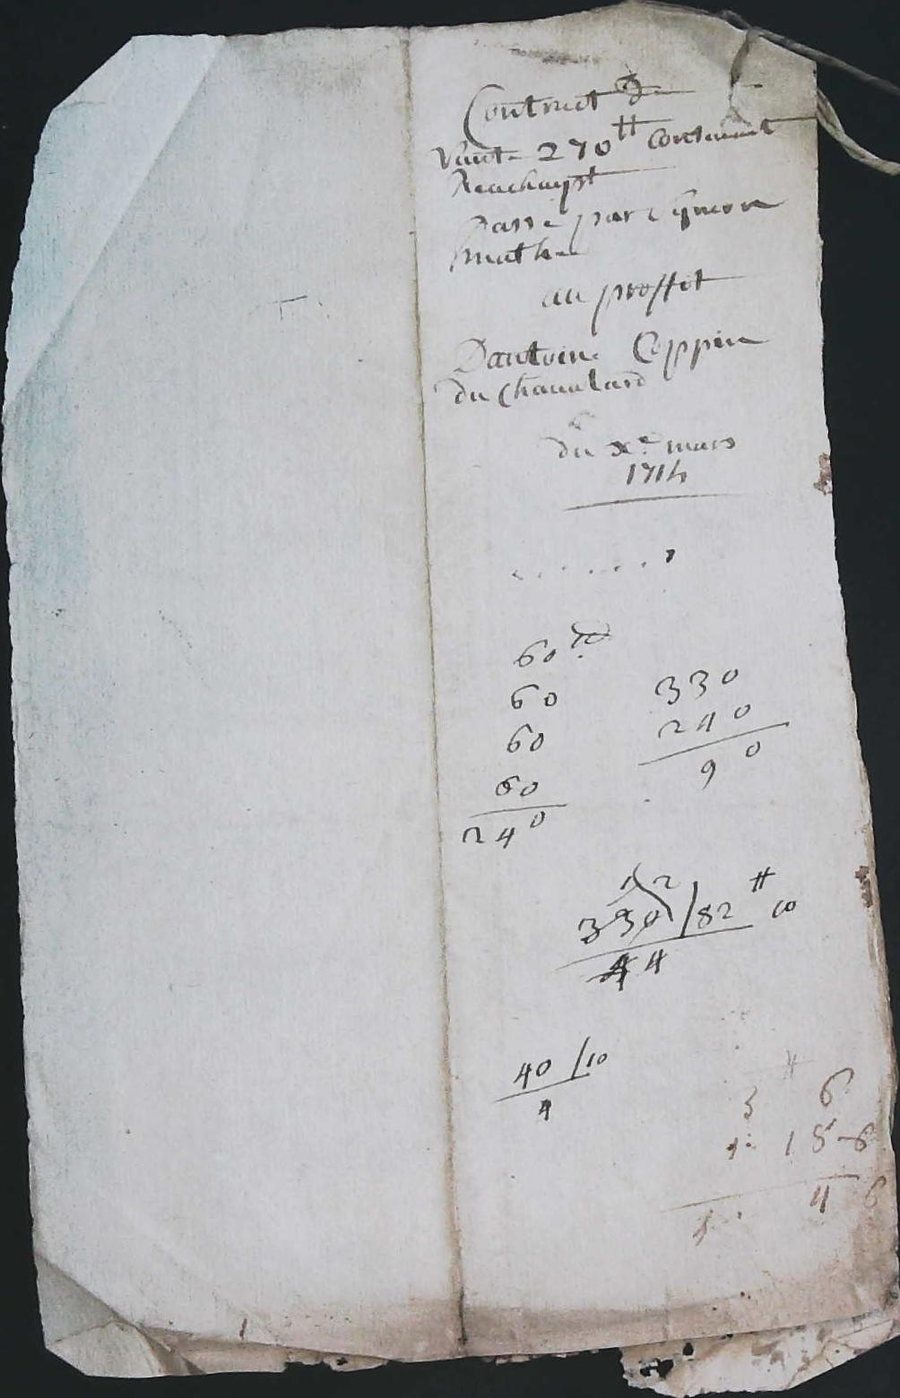 Contract de
Vante 270# Contenant
Reachapt
Passe par
mathe
au proffit
Dantoine Coppin
du Chaualard
du xe mars
1714
60
60
60
60
240
330
240
90
330 / 82 # 10
44
40 / 10
4
3 6
1 15 6
1 4 6